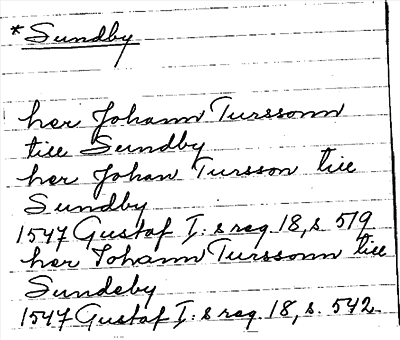 *Sundby
her Johann Turssonn
till Sundby
her Johan Tursson till
Sundby
1547 Gustaf I:s reg. 18, s. 519
her Johann Turssonn till
Sundeby
1547 Gustaf I:s reg. 18, s. 542